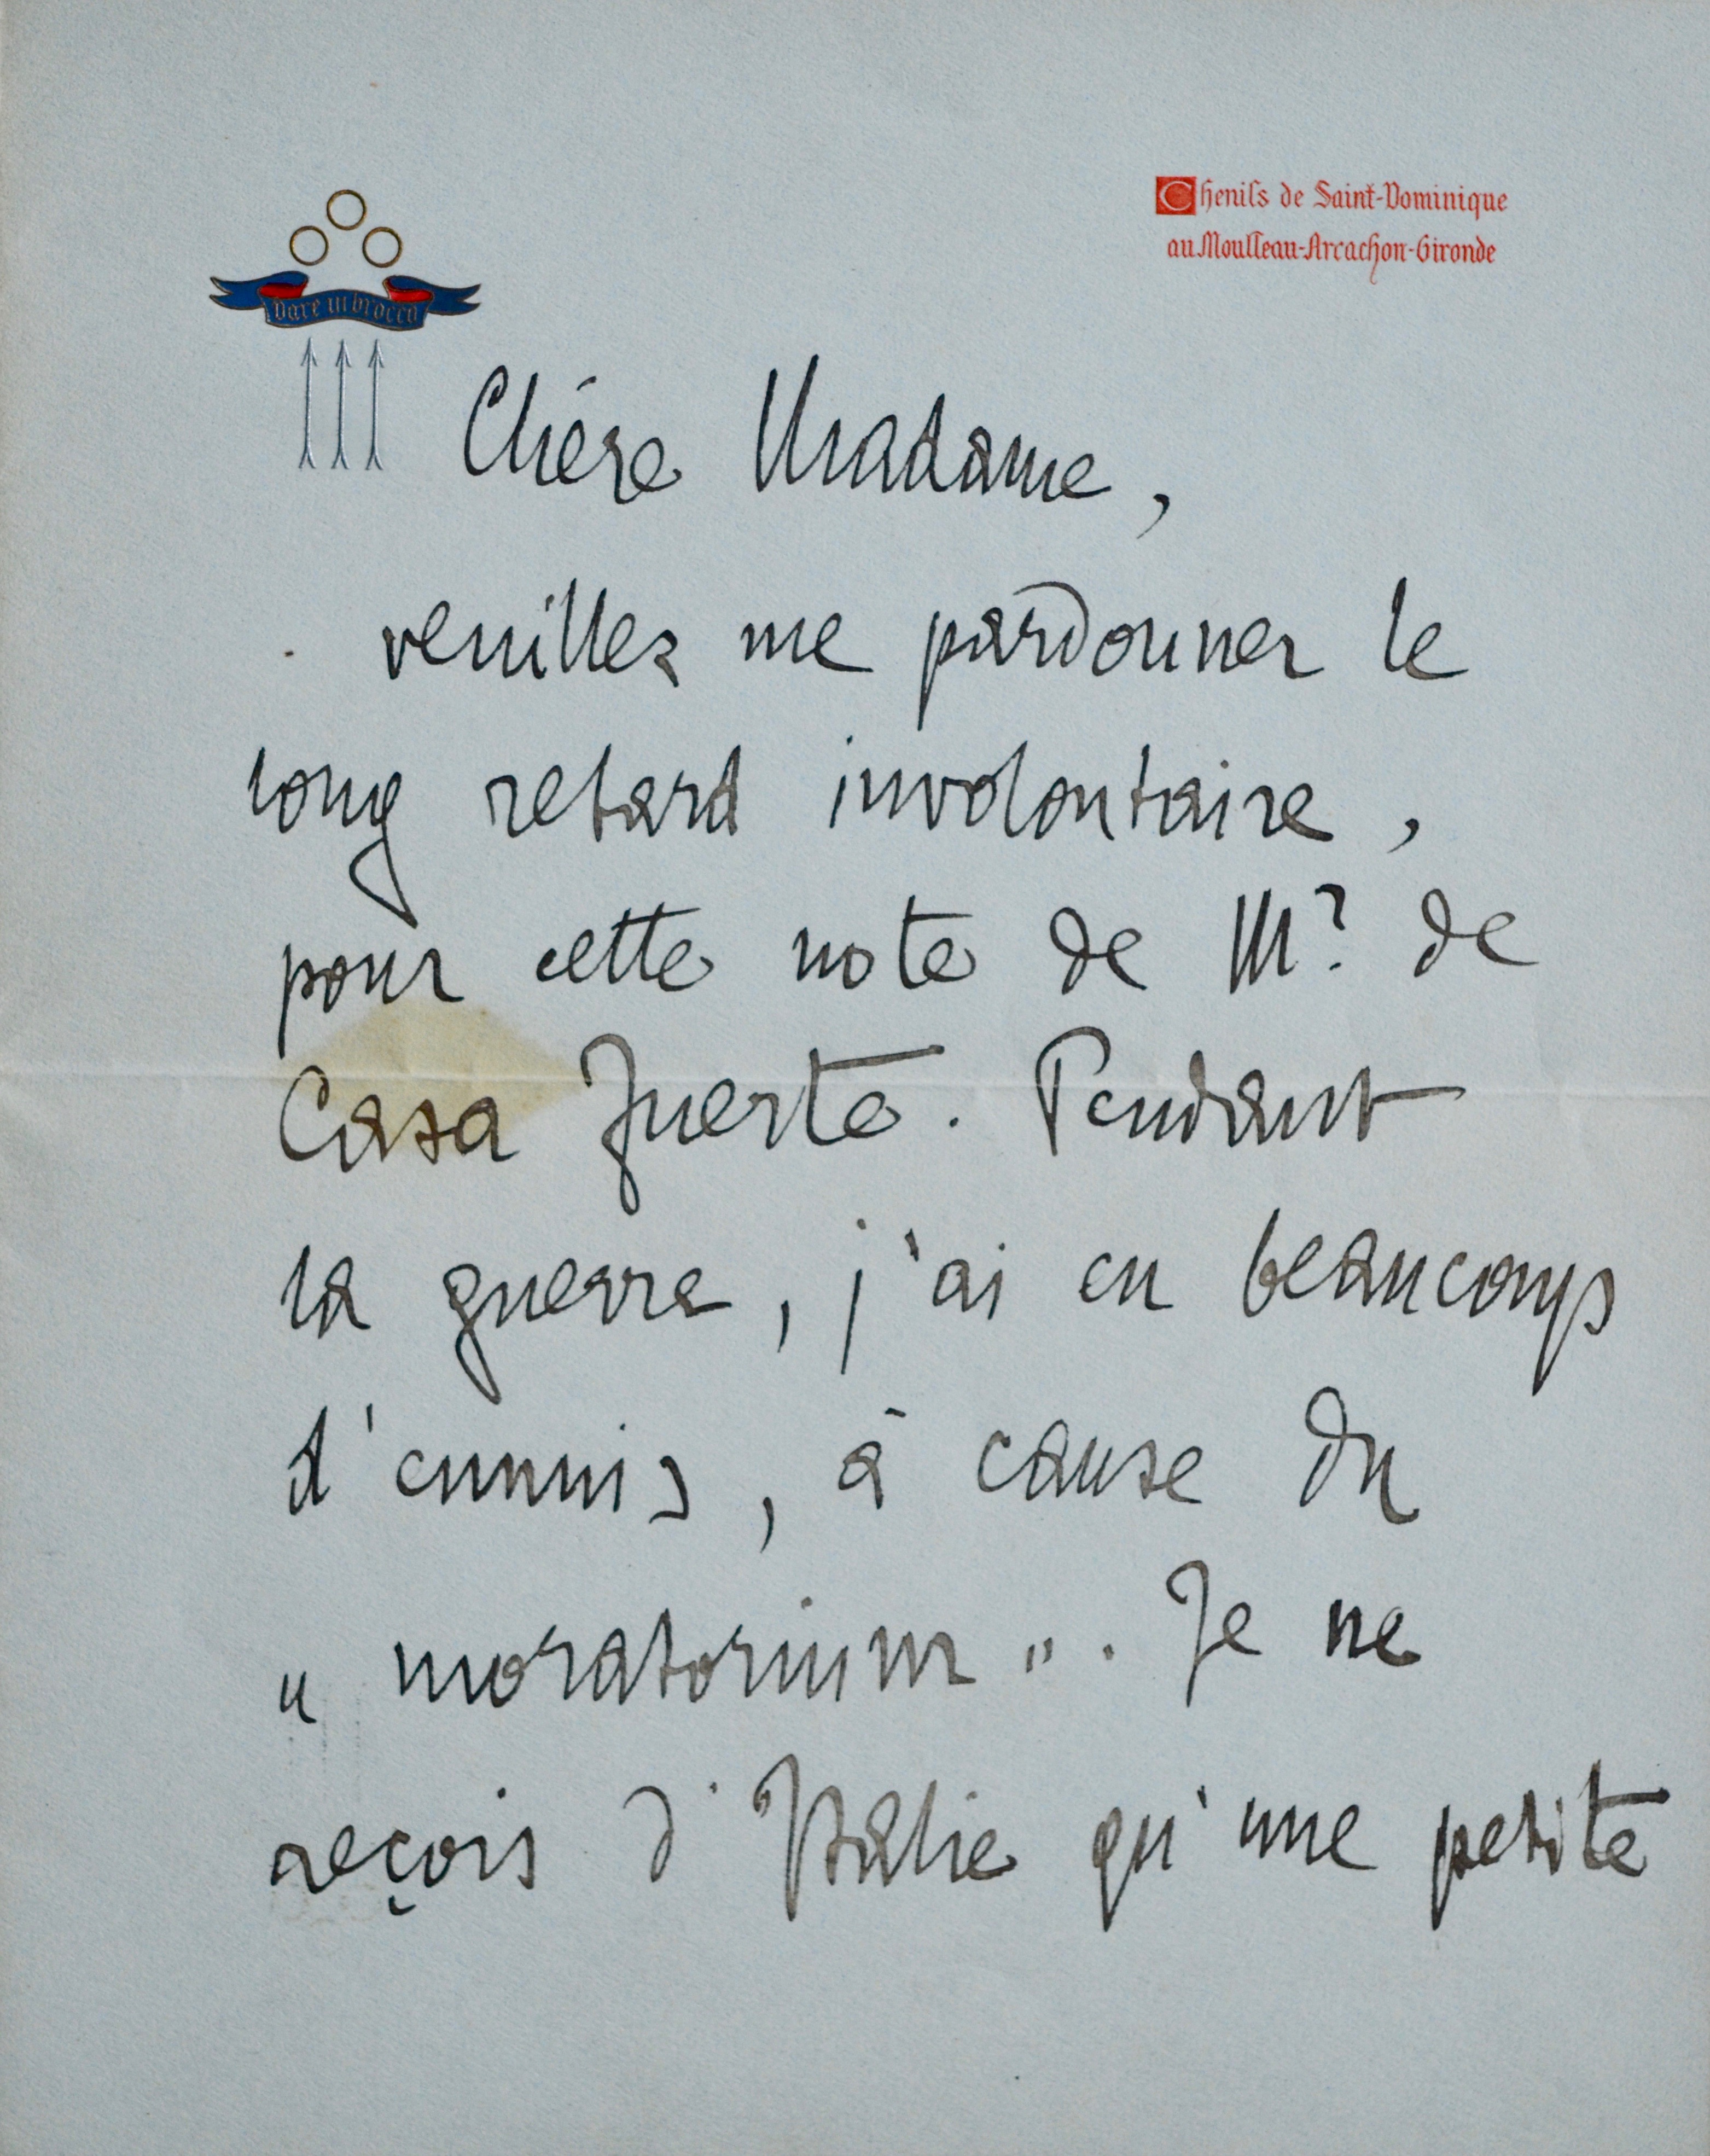 Chenils de Saint-Dominique
au Moulleau-Arcachon-Gironde
Dare in brocca
Chère Madame,
veuillez me pardonner le
long retard involontaire,
pour cette note de Mr. de
Casa Fuerte. Pendant
la guerre, j'ai eu beaucoup
d'ennuis, à cause du
"moratorium". Je ne
reçois d'Italie qu'une petite